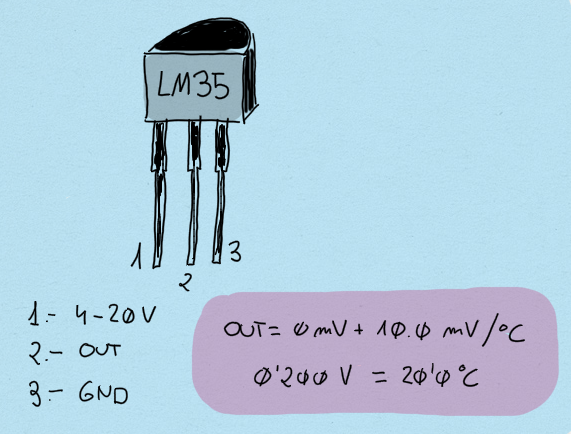 LM35
1
2
3
1.- 4-20 V
2.- OUT
3.- GND
OUT= 0 mV + 10.0 mV/°C
0'200 V = 20'0 °C